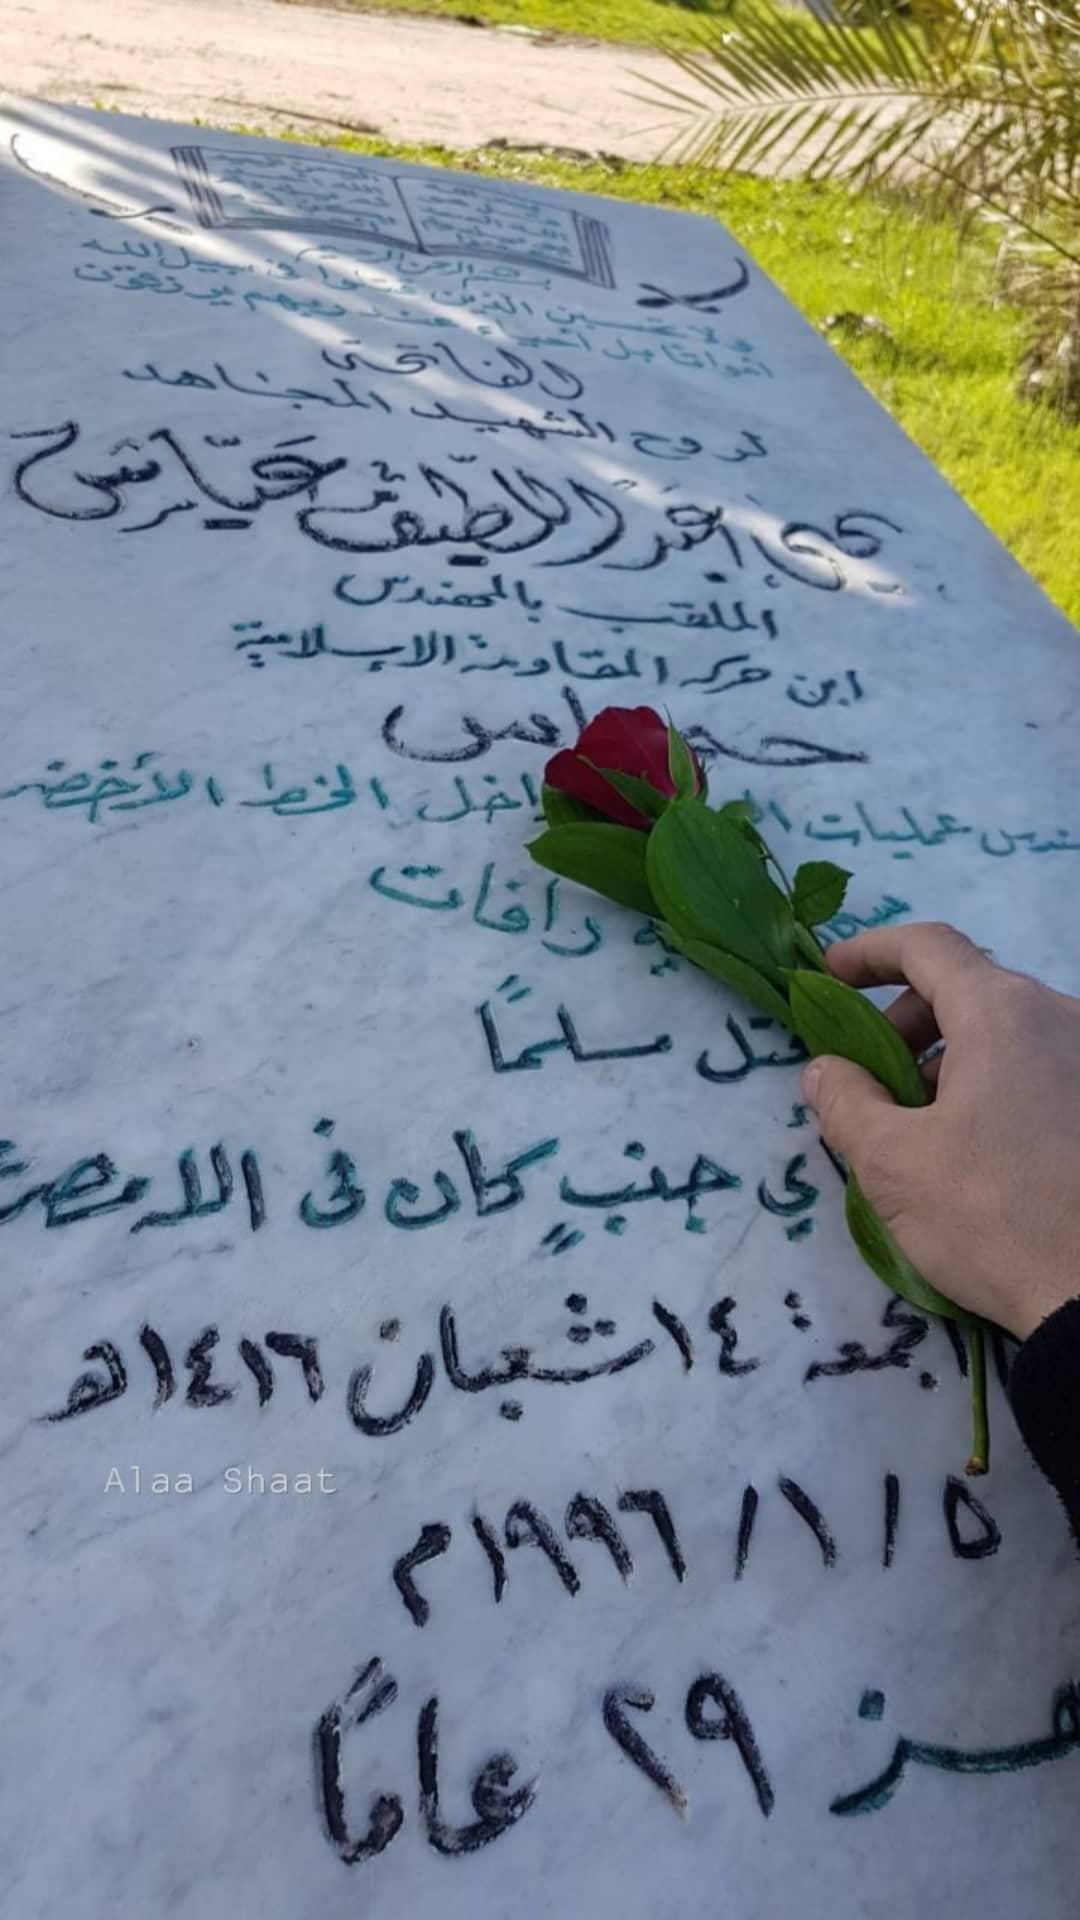 بسم الله الرحمن الرحيم
ولا تحسبن الذين قتلوا في سبيل الله
امواتا بل احياء عند ربهم يرزقون
الفاتحة
لروح الشهيد المجاهد
يحيى عبد اللطيف عيّاش
الملقب بالمهندس
ابن حركة المقاومة الإسلامية
حماس
مهندس عمليات داخل الخط الأخضر
رافات
قتل مسلمًا
أي جنبٍ كان في الله مصر
الجمعة ١٤ شعبان ١٤١٦هـ
Alaa Shaat
٥ / ١ / ١٩٩٦م
عن ٢٩ عامًا